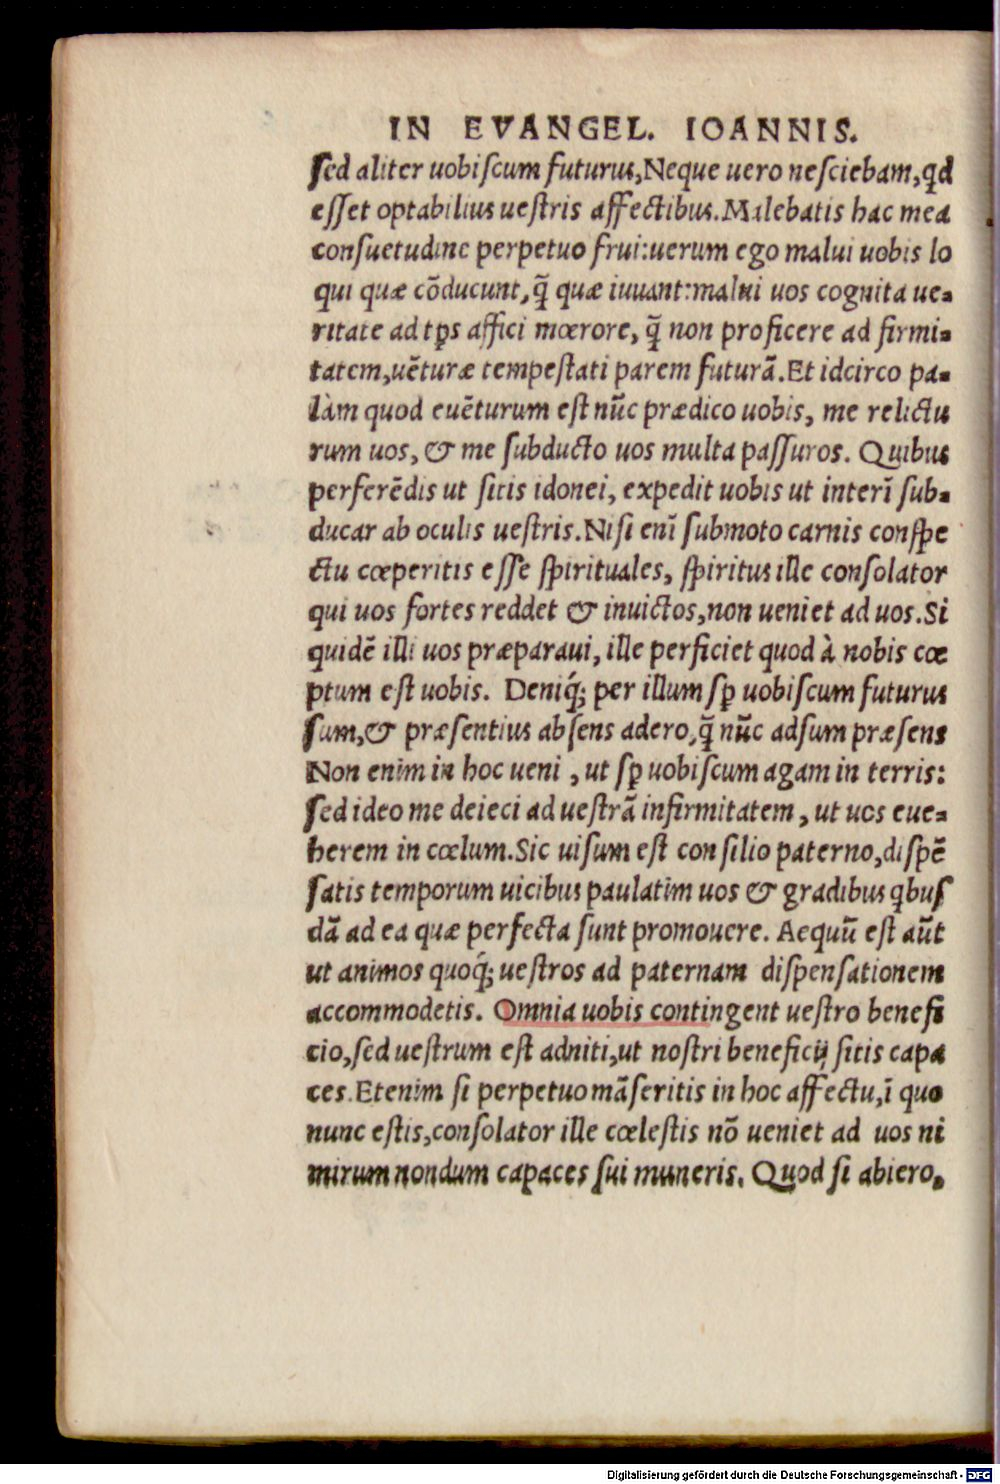 IN EVANGEL. IOANNIS.
sed aliter uobiscum futurus,Neque uero nesciebam,qd
esset optabilius uestris affectibus.Malebatis hac mea
consuetudine perpetuo frui:uerum ego malui uobis lo
qui quæ cōducunt,q̃ quæ iuuant:malui uos cognita ue-
ritate ad tp̄s affici mœrore,q̃ non proficere ad firmi-
tatem,uēturæ tempestati parem futurā.Et idcirco pa-
làm quod euēturum est nūc prædico uobis, me relictu
rum uos, & me subducto uos multa passuros. Quibus
perferēdis ut sitis idonei, expedit uobis ut interī sub-
ducar ab oculis uestris.Nisi enī submoto carnis conspe
ctu cœperitis esse spirituales, spiritus ille consolator
qui uos fortes reddet & inuictos,non ueniet ad uos.Si
quidē illi uos præparaui, ille perficiet quod à nobis cœ
ptum est uobis. Deniq́; per illum sp̄ uobiscum futurus
sum,& præsentius absens adero,q̃ nūc adsum præsens
Non enim in hoc ueni , ut sp̄ uobiscum agam in terris:
sed ideo me deieci ad uestrā infirmitatem , ut uos eue-
herem in cœlum.Sic uisum est consilio paterno,dispē
satis temporum uicibus paulatim uos & gradibus q̇bus
dā ad ea quæ perfecta sunt promouere. Aequū est aūt
ut animos quoq́; uestros ad paternam dispensationem
accommodetis. Omnia uobis contingent uestro benefi
cio,sed uestrum est adniti,ut nostri beneficij sitis capa
ces.Etenim si perpetuo māseritis in hoc affectu,ī quo
nunc estis,consolator ille cœlestis nō ueniet ad uos ni
mirum nondum capaces sui muneris. Quod si abiero,
Digitalisierung gefördert durch die Deutsche Forschungsgemeinschaft - DFG